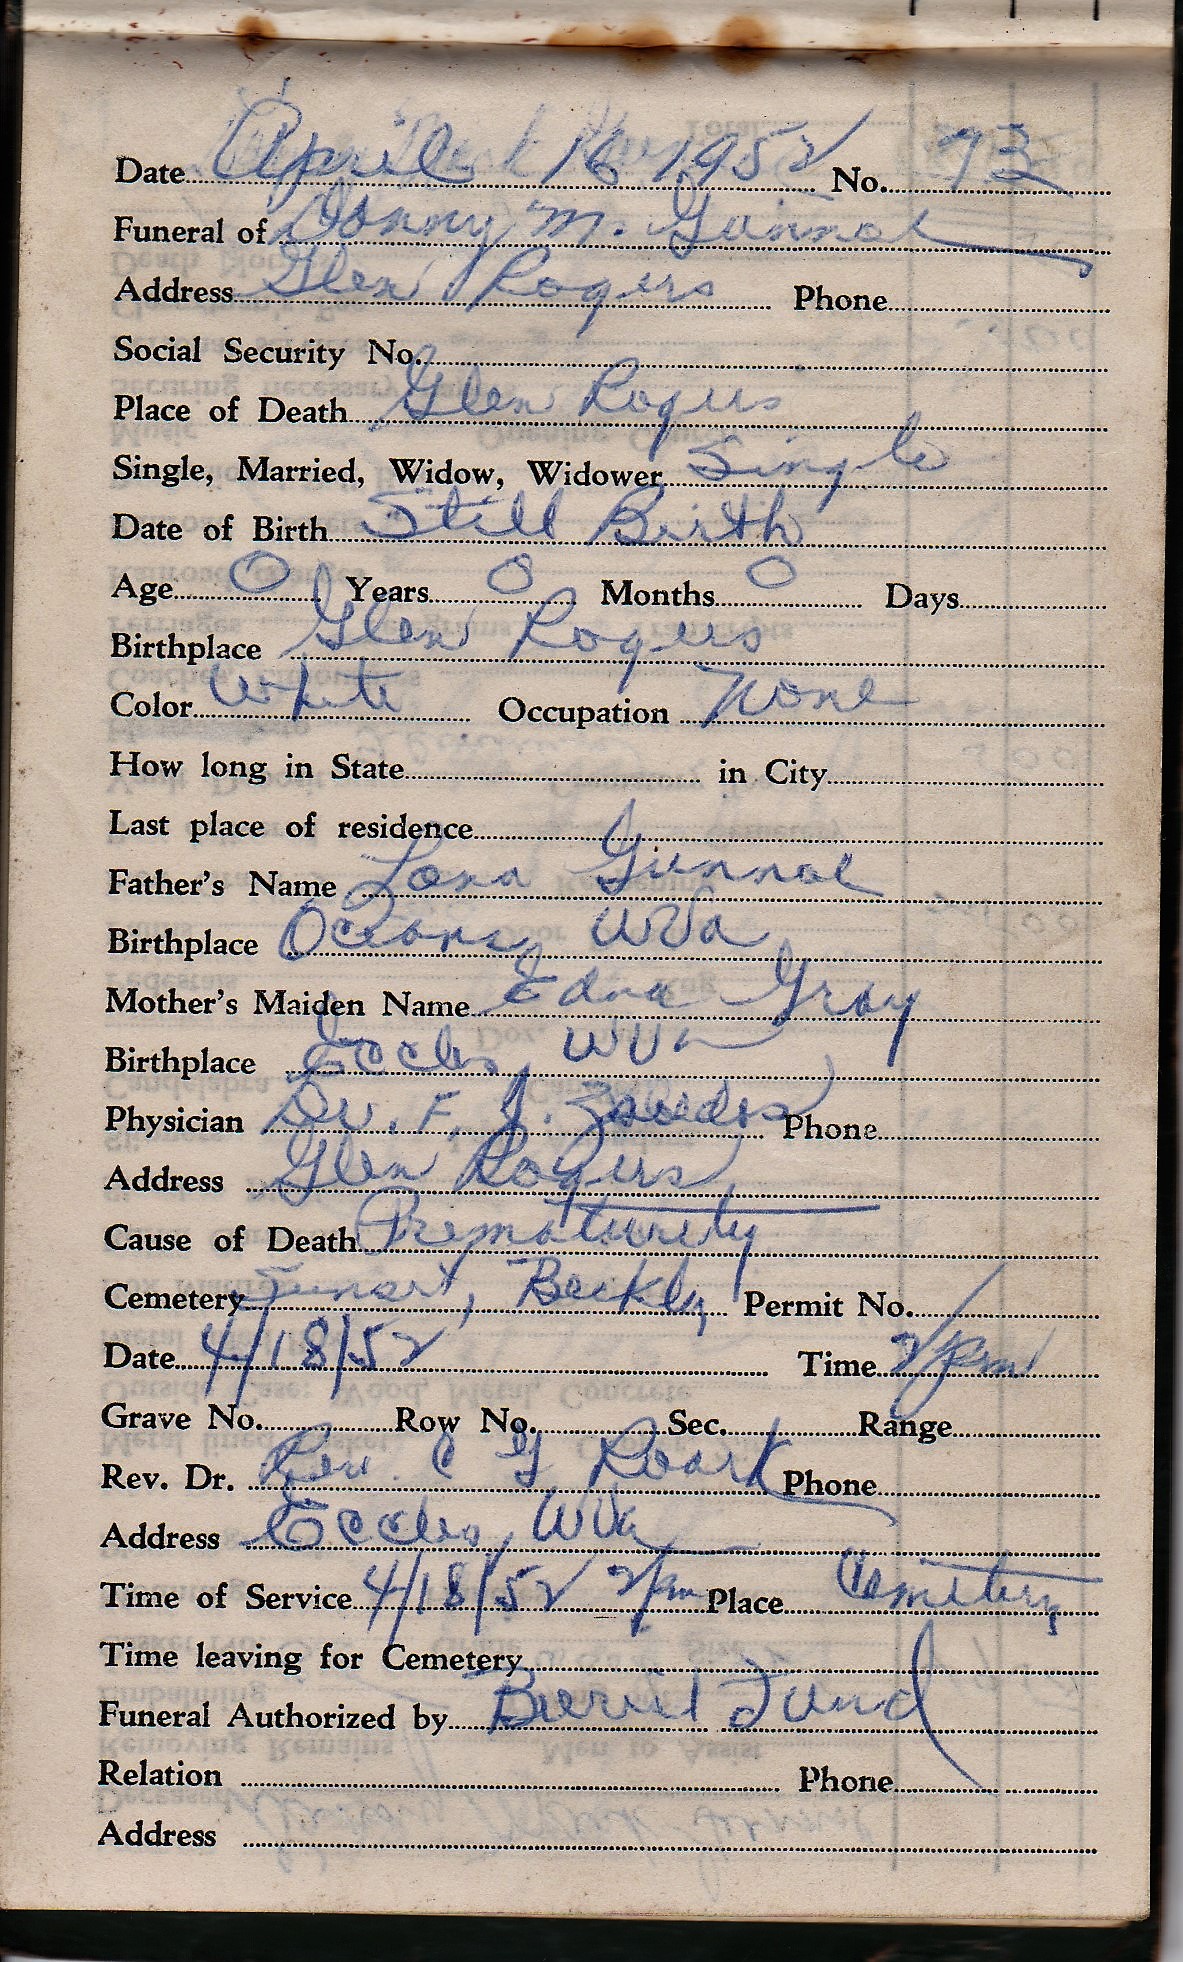 Date April 16 1952 No. 73
Funeral of Donny M. Gunnoe
Address Glen Rogers Phone
Social Security No.
Place of Death Glen Rogers
Single, Married, Widow, Widower Single
Date of Birth Still Birth
Age 0 Years 0 Months 0 Days
Birthplace Glen Rogers
Color White Occupation None
How long in State in City
Last place of residence
Father's Name Lona Gunnoe
Birthplace Oceana, WVa
Mother's Maiden Name Edna Gray
Birthplace Eccles, WVa
Physician Dr. F. J. Phone
Address Glen Rogers
Cause of Death Prematurity
Cemetery Sunset, Beckly Permit No.
Date 4/18/52 Time 2/pm
Grave No. Row No. Sec. Range
Rev. Dr. Rev. C G Roark Phone
Address Eccles, WVa
Time of Service 4/18/52 2/pm Place Cemetery
Time leaving for Cemetery
Funeral Authorized by Burial Fund
Relation Phone
Address